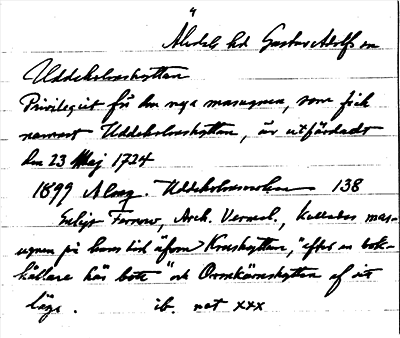 Älvdals hd Gustav Adolfs sn
Uddeholmshyttan
Privilegiet för den nya masugnen, som fick
namnet Uddeholmshyttan, är utfärdadt
den 23 Maj 1724
1899 Almq. Uddeholmsverken 138
Enligt Fernow, Besk. Vermel., kallades mas-
ugnen på hans tid "äfven Krushyttan, "efter en bok-
hållare här bott" och Ormkärnshyttan af sitt
läge. ib. not xxx